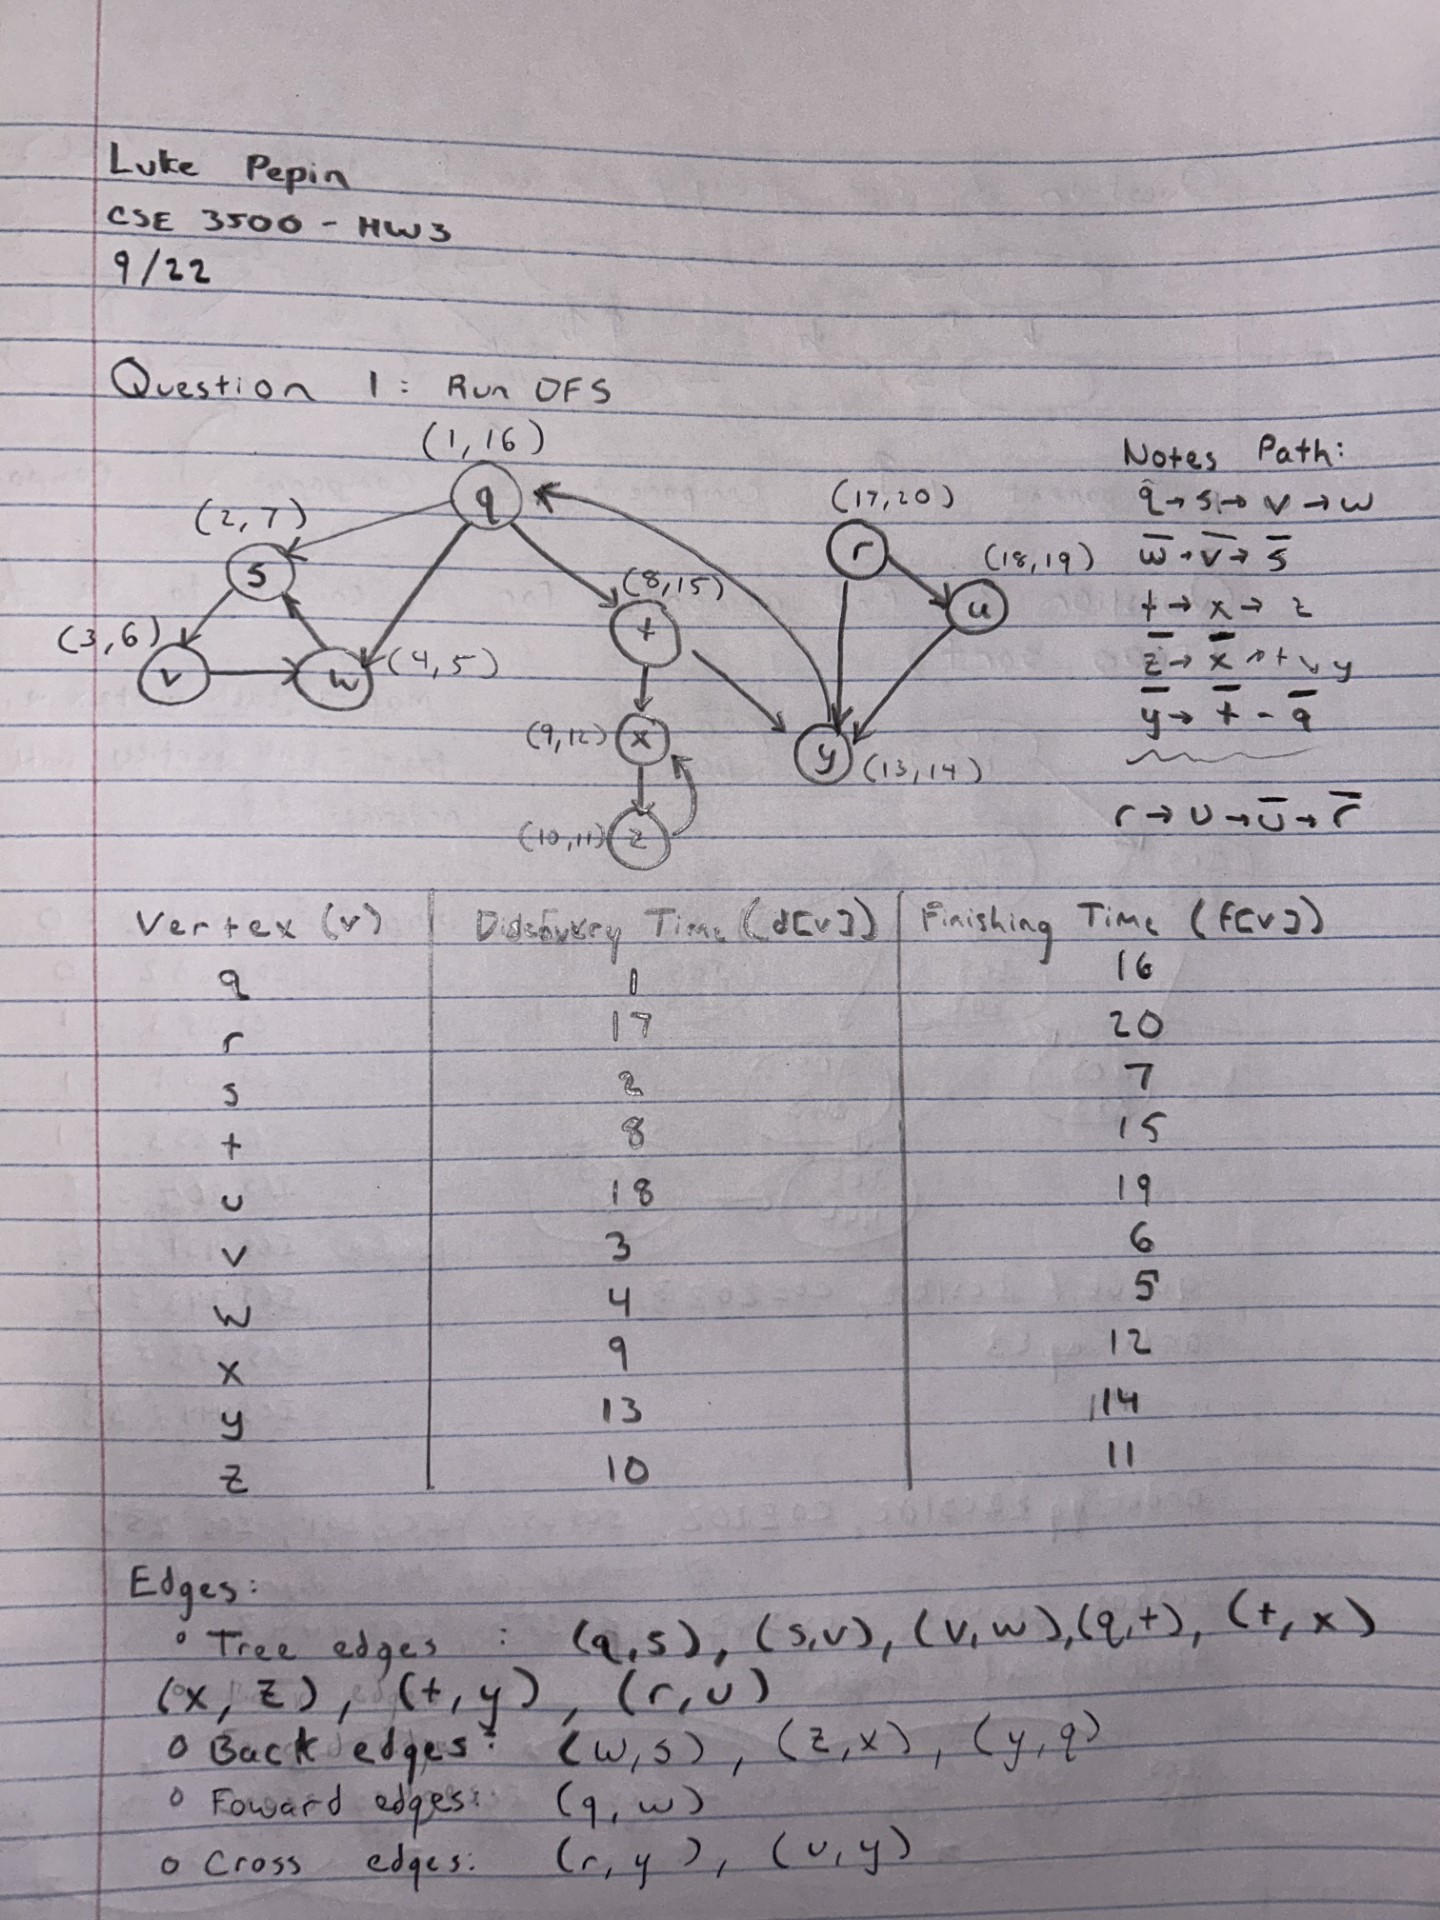 Luke Pepin
CSE 3500 - HW3
9/22
Question 1: Run DFS
(1,16)
q
(2,7)
s
(3,6)
v
w
(4,5)
(8,15)
t
(9,12)
x
(10,11)
z
(17,20)
r
(18,19)
u
y
(13,14)
Notes Path:
q→s→v→w
w̅→v̅→s̅
t→x→z
z̅→x̅→t↘y
y̅→t̅-q̅
r→u→u̅→r̅
Vertex (v) Discovery Time (d[v]) Finishing Time (f[v])
q 1 16
r 17 20
s 2 7
t 8 15
u 18 19
v 3 6
w 4 5
x 9 12
y 13 14
z 10 11
Edges:
° Tree edges : (q,s), (s,v), (v,w),(q,t), (t,x)
(x,z), (t,y), (r,u)
o Back edges: (w,s), (z,x), (y,q)
o Foward edges: (q,w)
o Cross edges: (r,y), (u,y)